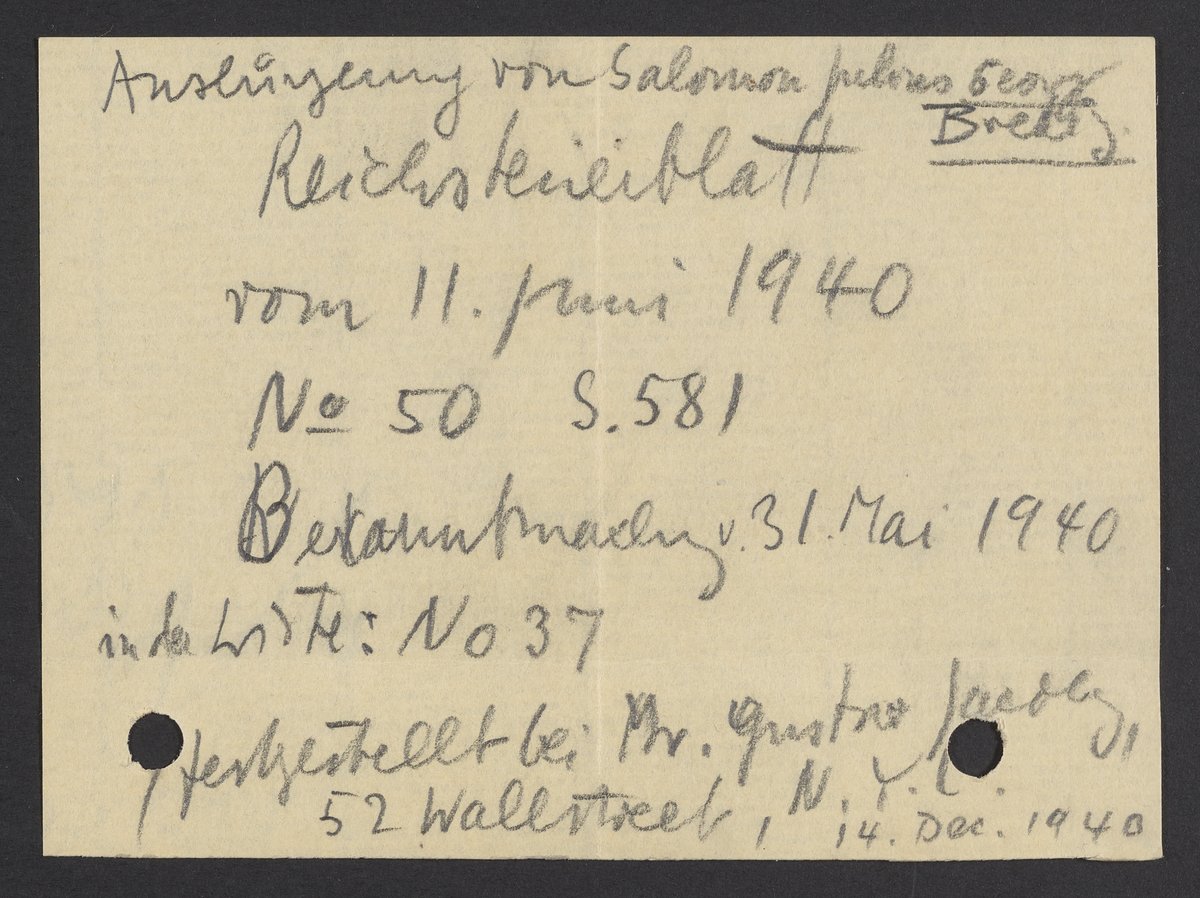 Ausbürgerung von Salomon Julius Georg
Bredig.
Reichssteuerblatt
vom 11. Juni 1940
No 50 S. 581
Bekanntmachung v. 31. Mai 1940
in der Liste: No 37
festgestellt bei Mr. Gustav Jacoby,
52 Wallstreet, N. Y. C.
14. Dec. 1940